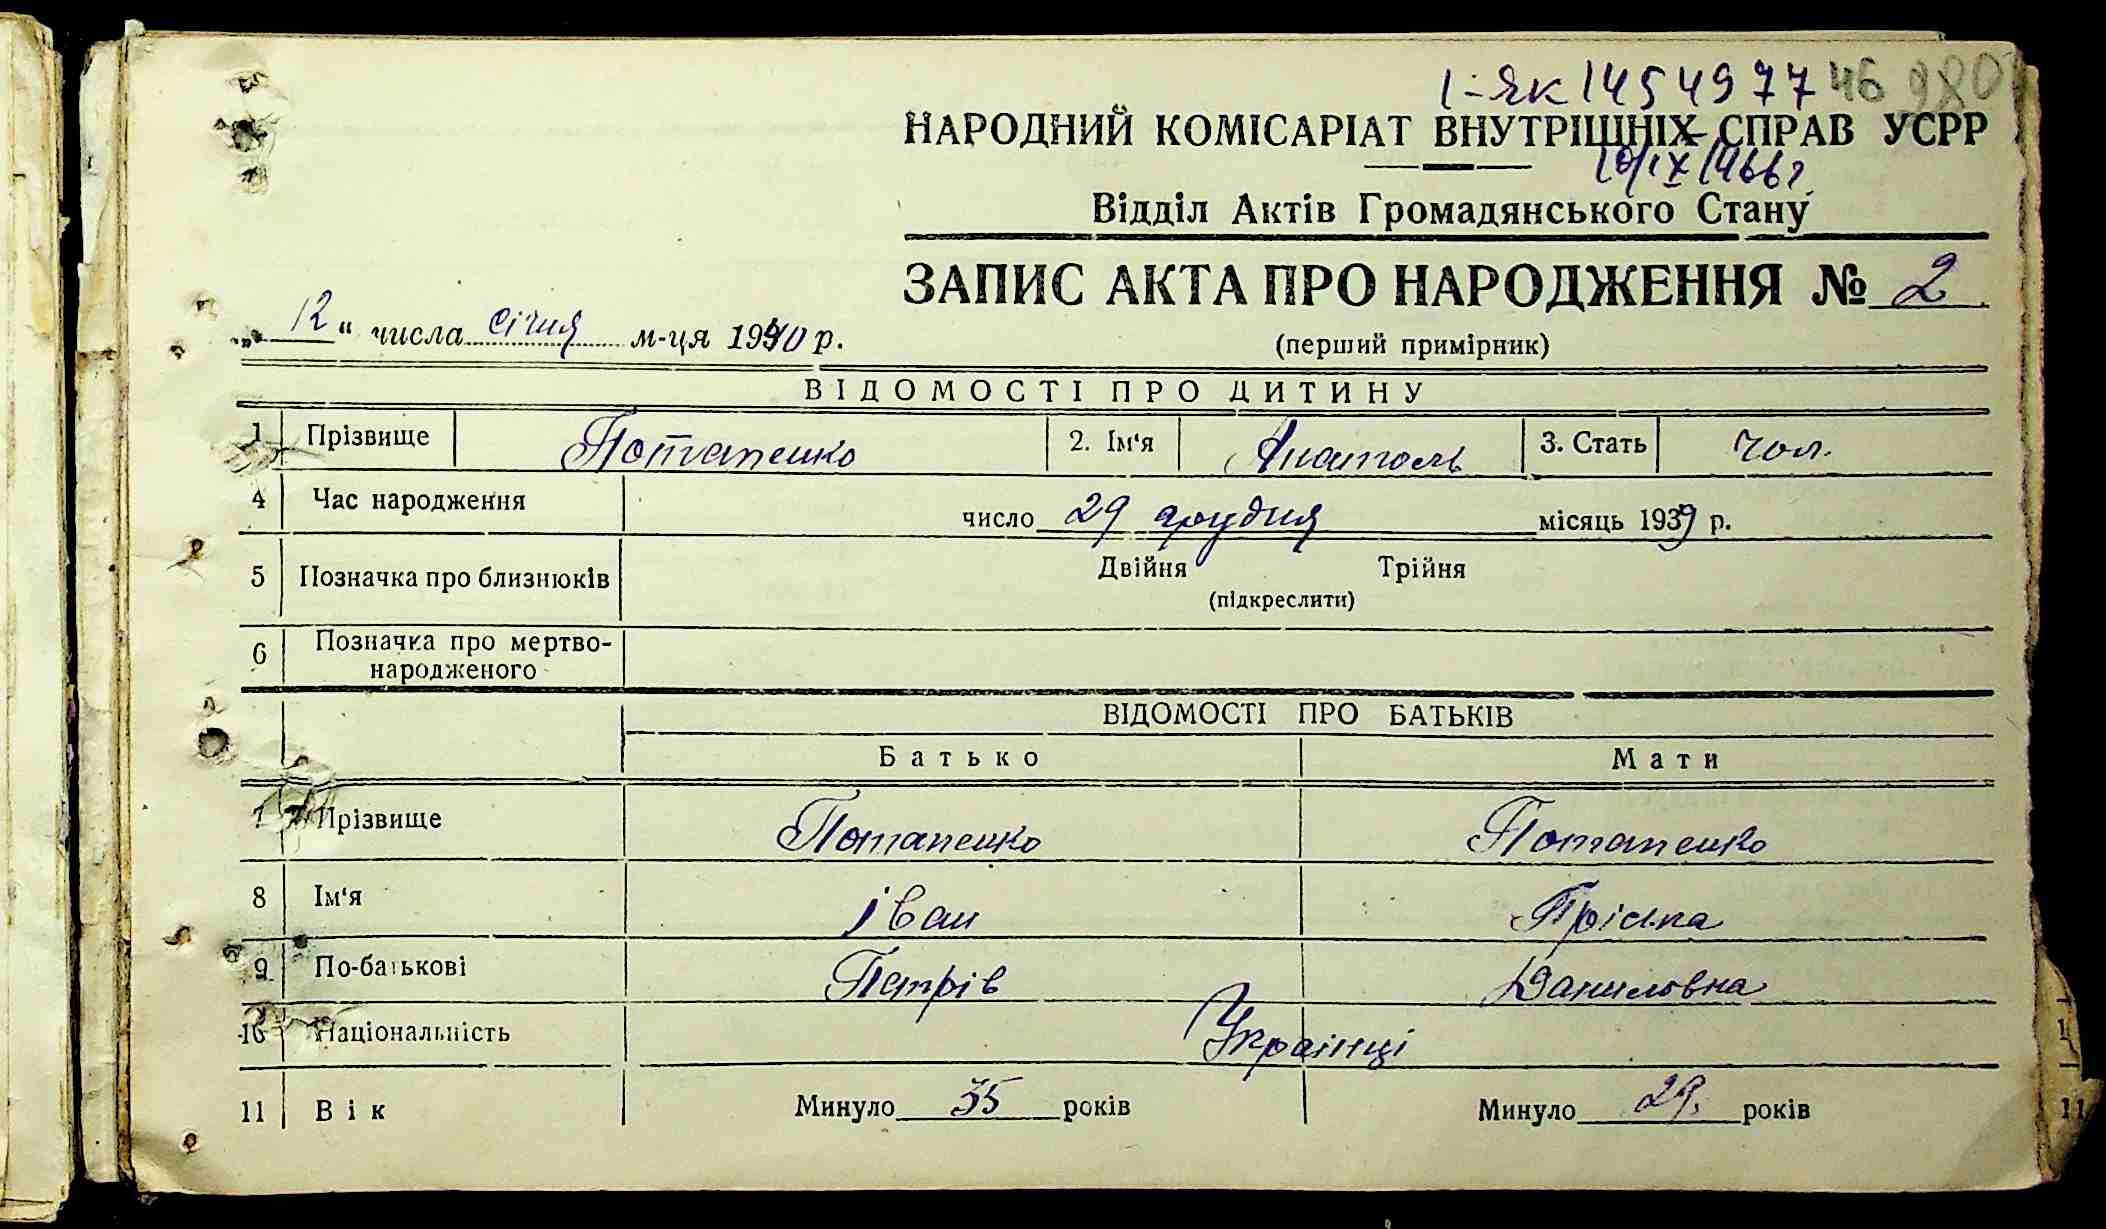 I-ЯК 1454977 46 980
НАРОДНИЙ КОМІСАРІАТ ВНУТРІШНІХ СПРАВ УСРР
10/IX 1966 г.
Відділ Актів Громадянського Стану
ЗАПИС АКТА ПРО НАРОДЖЕННЯ № 2
„ 12 “ числа січня м-ця 1940 р.
(перший примірник)
ВІДОМОСТІ ПРО ДИТИНУ
1 Прізвище Потапенко 2. Ім'я Анатоль 3. Стать чол.
4 Час народження число 29 грудня місяць 1939 р.
5 Позначка про близнюків Двійня Трійня
(підкреслити)
6 Позначка про мертво-
народженого
ВІДОМОСТІ ПРО БАТЬКІВ
Батько Мати
7 Прізвище Потапенко Потапенко
8 Ім'я Іван Пріська
9 По-батькові Петрів Даниловна
10 Національність Українці
11 Вік Минуло 35 років Минуло 29. років
11